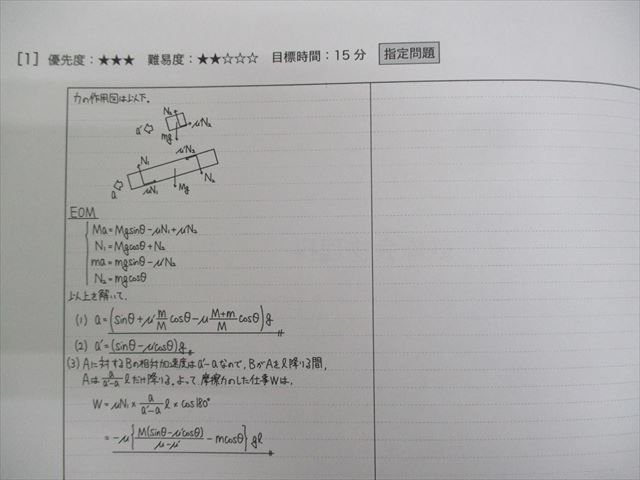 [1] 優先度：★★★ 難易度：★★☆☆☆ 目標時間：15分 指定問題
力の作用図は以下.
N₂
a' μ'N₂
mg
μ'N₂
N₁
a μN₁ Mg N₂
EOM
Ma=Mgsinθ-μN₁+μ'N₂
N₁=Mgcosθ+N₂
ma=mgsinθ-μ'N₂
N₂=mgcosθ
以上を解いて.
(1) a=(sinθ+μ' m/M cosθ-μ M+m/M cosθ)g
(2) a'=(sinθ-μ'cosθ)g
(3) Aに対するBの相対加速度はa'-aなので, BがAをl降りる間,
Aは a/a'-a lだけ降りる. よって, 摩擦力のした仕事Wは,
W=μN₁× a/a'-a l×cos180°
=-μ{M(sinθ-μ'cosθ)/μ-μ' -mcosθ}gl